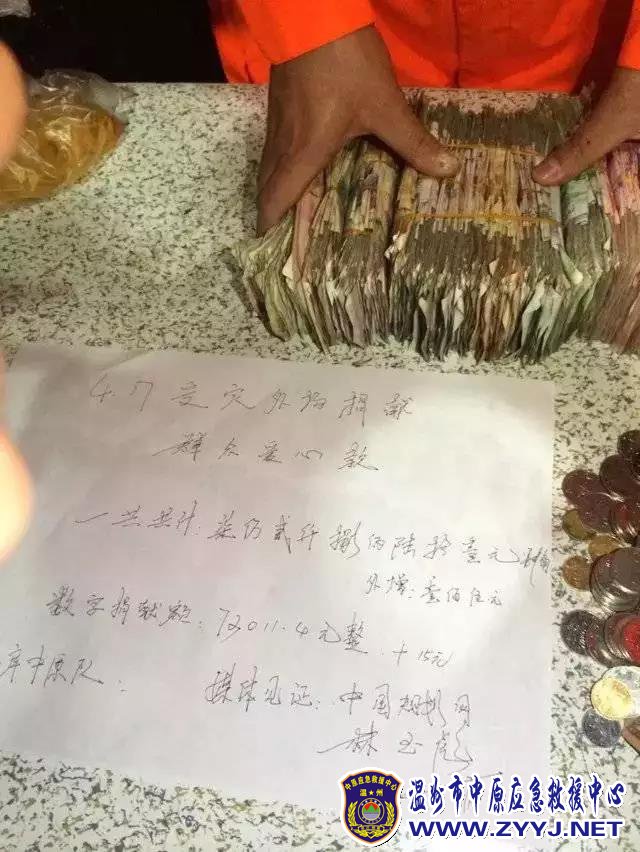 4.7受灾外的捐献
群众爱心款
一共共计:柒仟贰仟捌佰陆拾壹元
外增:壹佰伍元
数字捐献额:72011.4元整 +15元
中原队:
媒体见证:中国规划网
林玉彪
中原应急救援中心
温★州
温州市中原应急救援中心
WWW.ZYYJ.NET